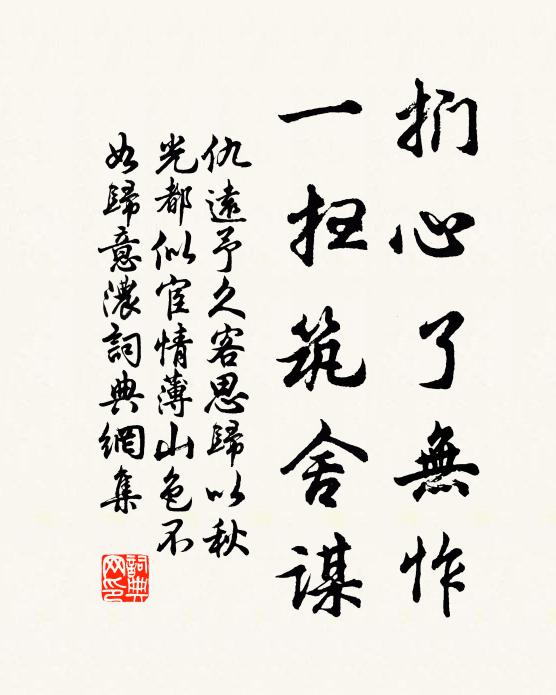 捫心了無怍
一扫筑舍謀
仇遠予久客思歸以秋
光都似宦情薄山色不
如歸意濃詞典網集
詞典网印